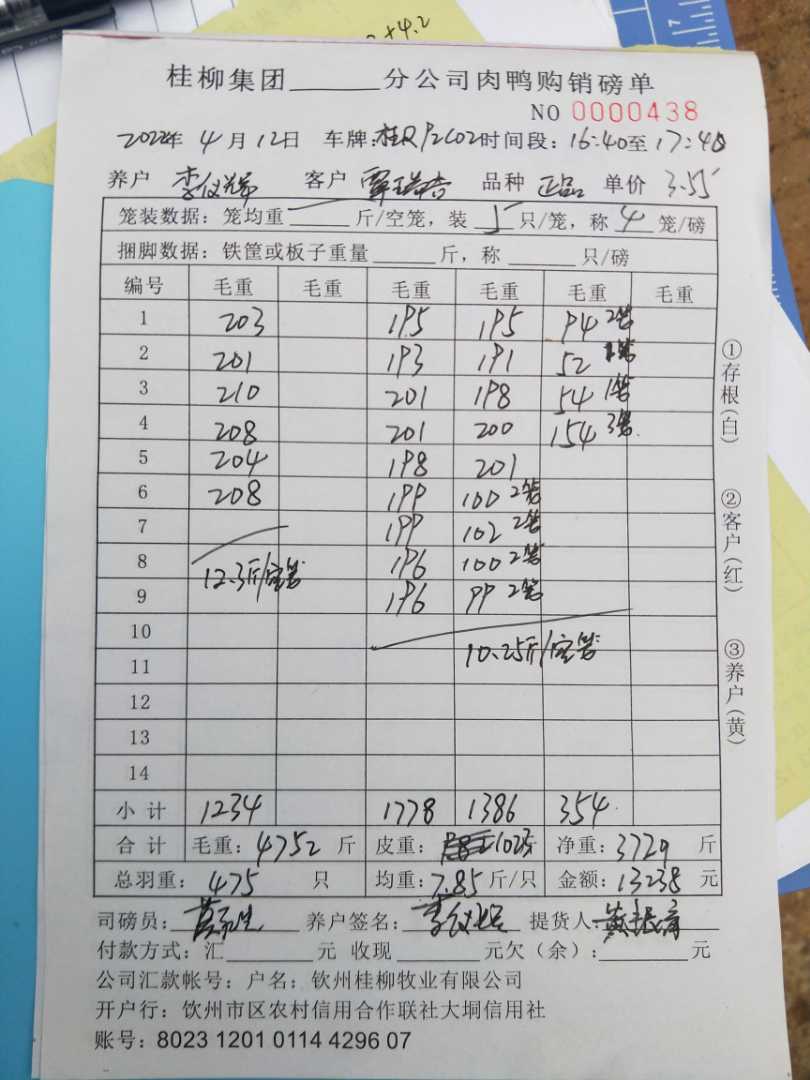 2+4.2
桂柳集团______分公司肉鸭购销磅单
NO 0000438
2022年 4月12日 车牌:桂R P2602 时间段:16:40至17:40
养户 李仪弟 客户 覃瑞吉 品种 正品 单价 3.55
笼装数据:笼均重______斤/空笼,装 5 只/笼,称 4 笼/磅
捆脚数据:铁筐或板子重量______斤,称______只/磅
编号 毛重 毛重 毛重 毛重 毛重 毛重
1 203 195 195 94 2笼
2 201 193 191 52 1笼
3 210 201 198 54 1笼
4 208 201 200 154 3笼
5 204 198 201
6 208 199 100 2笼
7 199 102 2笼
8 12.3斤/空笼 196 100 2笼
9 196 99 2笼
10
10.25斤/空笼
11
12
13
14
小计 1234 1778 1386 354
合计 毛重:4752 斤 皮重:1023 净重:3729 斤
总羽重:475 只 均重:7.85 斤/只 金额:13238 元
司磅员: 养户签名: 提货人:黄振
付款方式:汇______元 收现______元欠(余):______元
公司汇款帐号:户名:钦州桂柳牧业有限公司
开户行:钦州市区农村信用合作联社大垌信用社
账号:8023 1201 0114 4296 07
①存根(白)
②客户(红)
③养户(黄)